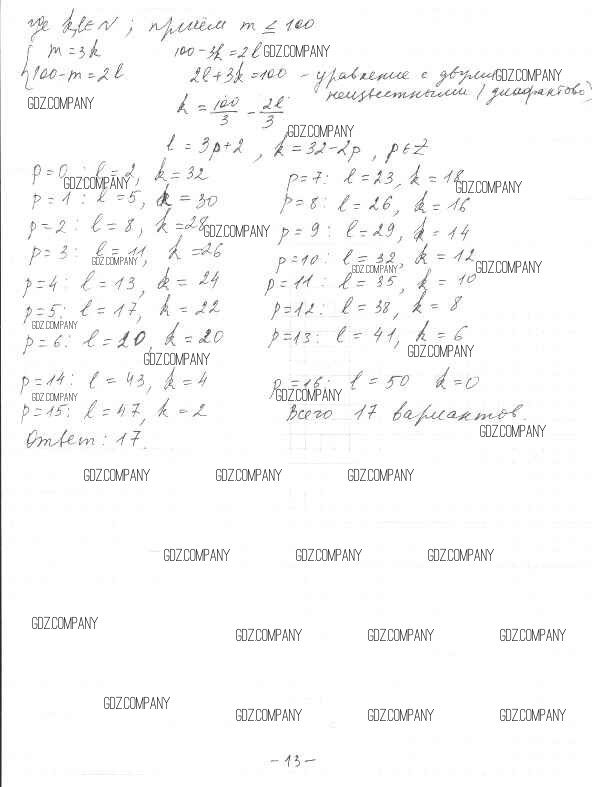 где k,l∈N ; причём m ≤ 100
{ m = 3k 100-3k=2l GDZ.COMPANY
100-m=2l 2l+3k=100 - уравнение с двумя GDZ.COMPANY
GDZ.COMPANY неизвестными (диофантово)
k = 100/3 - 2l/3
GDZ.COMPANY
l = 3p+2 , k = 32-2p , p∈Z
p=0: l=2, k=32 p=7: l=23, k=18
GDZ.COMPANY GDZ.COMPANY
p=1: l=5, k=30 p=8: l=26, k=16
p=2: l=8, k=28 GDZ.COMPANY p=9: l=29, k=14
p=3: l=11, k=26 p=10: l=32, k=12
GDZ.COMPANY GDZ.COMPANY GDZ.COMPANY
p=4: l=13, k=24 p=11: l=35, k=10
p=5: l=17, k=22 p=12: l=38, k=8
GDZ.COMPANY
p=6: l=20, k=20 p=13: l=41, k=6
GDZ.COMPANY GDZ.COMPANY
p=14: l=43, k=4 p=16: l=50 k=0
GDZ.COMPANY GDZ.COMPANY
p=15: l=47, k=2 Всего 17 вариантов.
GDZ.COMPANY
Ответ: 17.
GDZ.COMPANY GDZ.COMPANY GDZ.COMPANY
GDZ.COMPANY GDZ.COMPANY GDZ.COMPANY
GDZ.COMPANY
GDZ.COMPANY GDZ.COMPANY GDZ.COMPANY
GDZ.COMPANY
GDZ.COMPANY GDZ.COMPANY GDZ.COMPANY
-13-